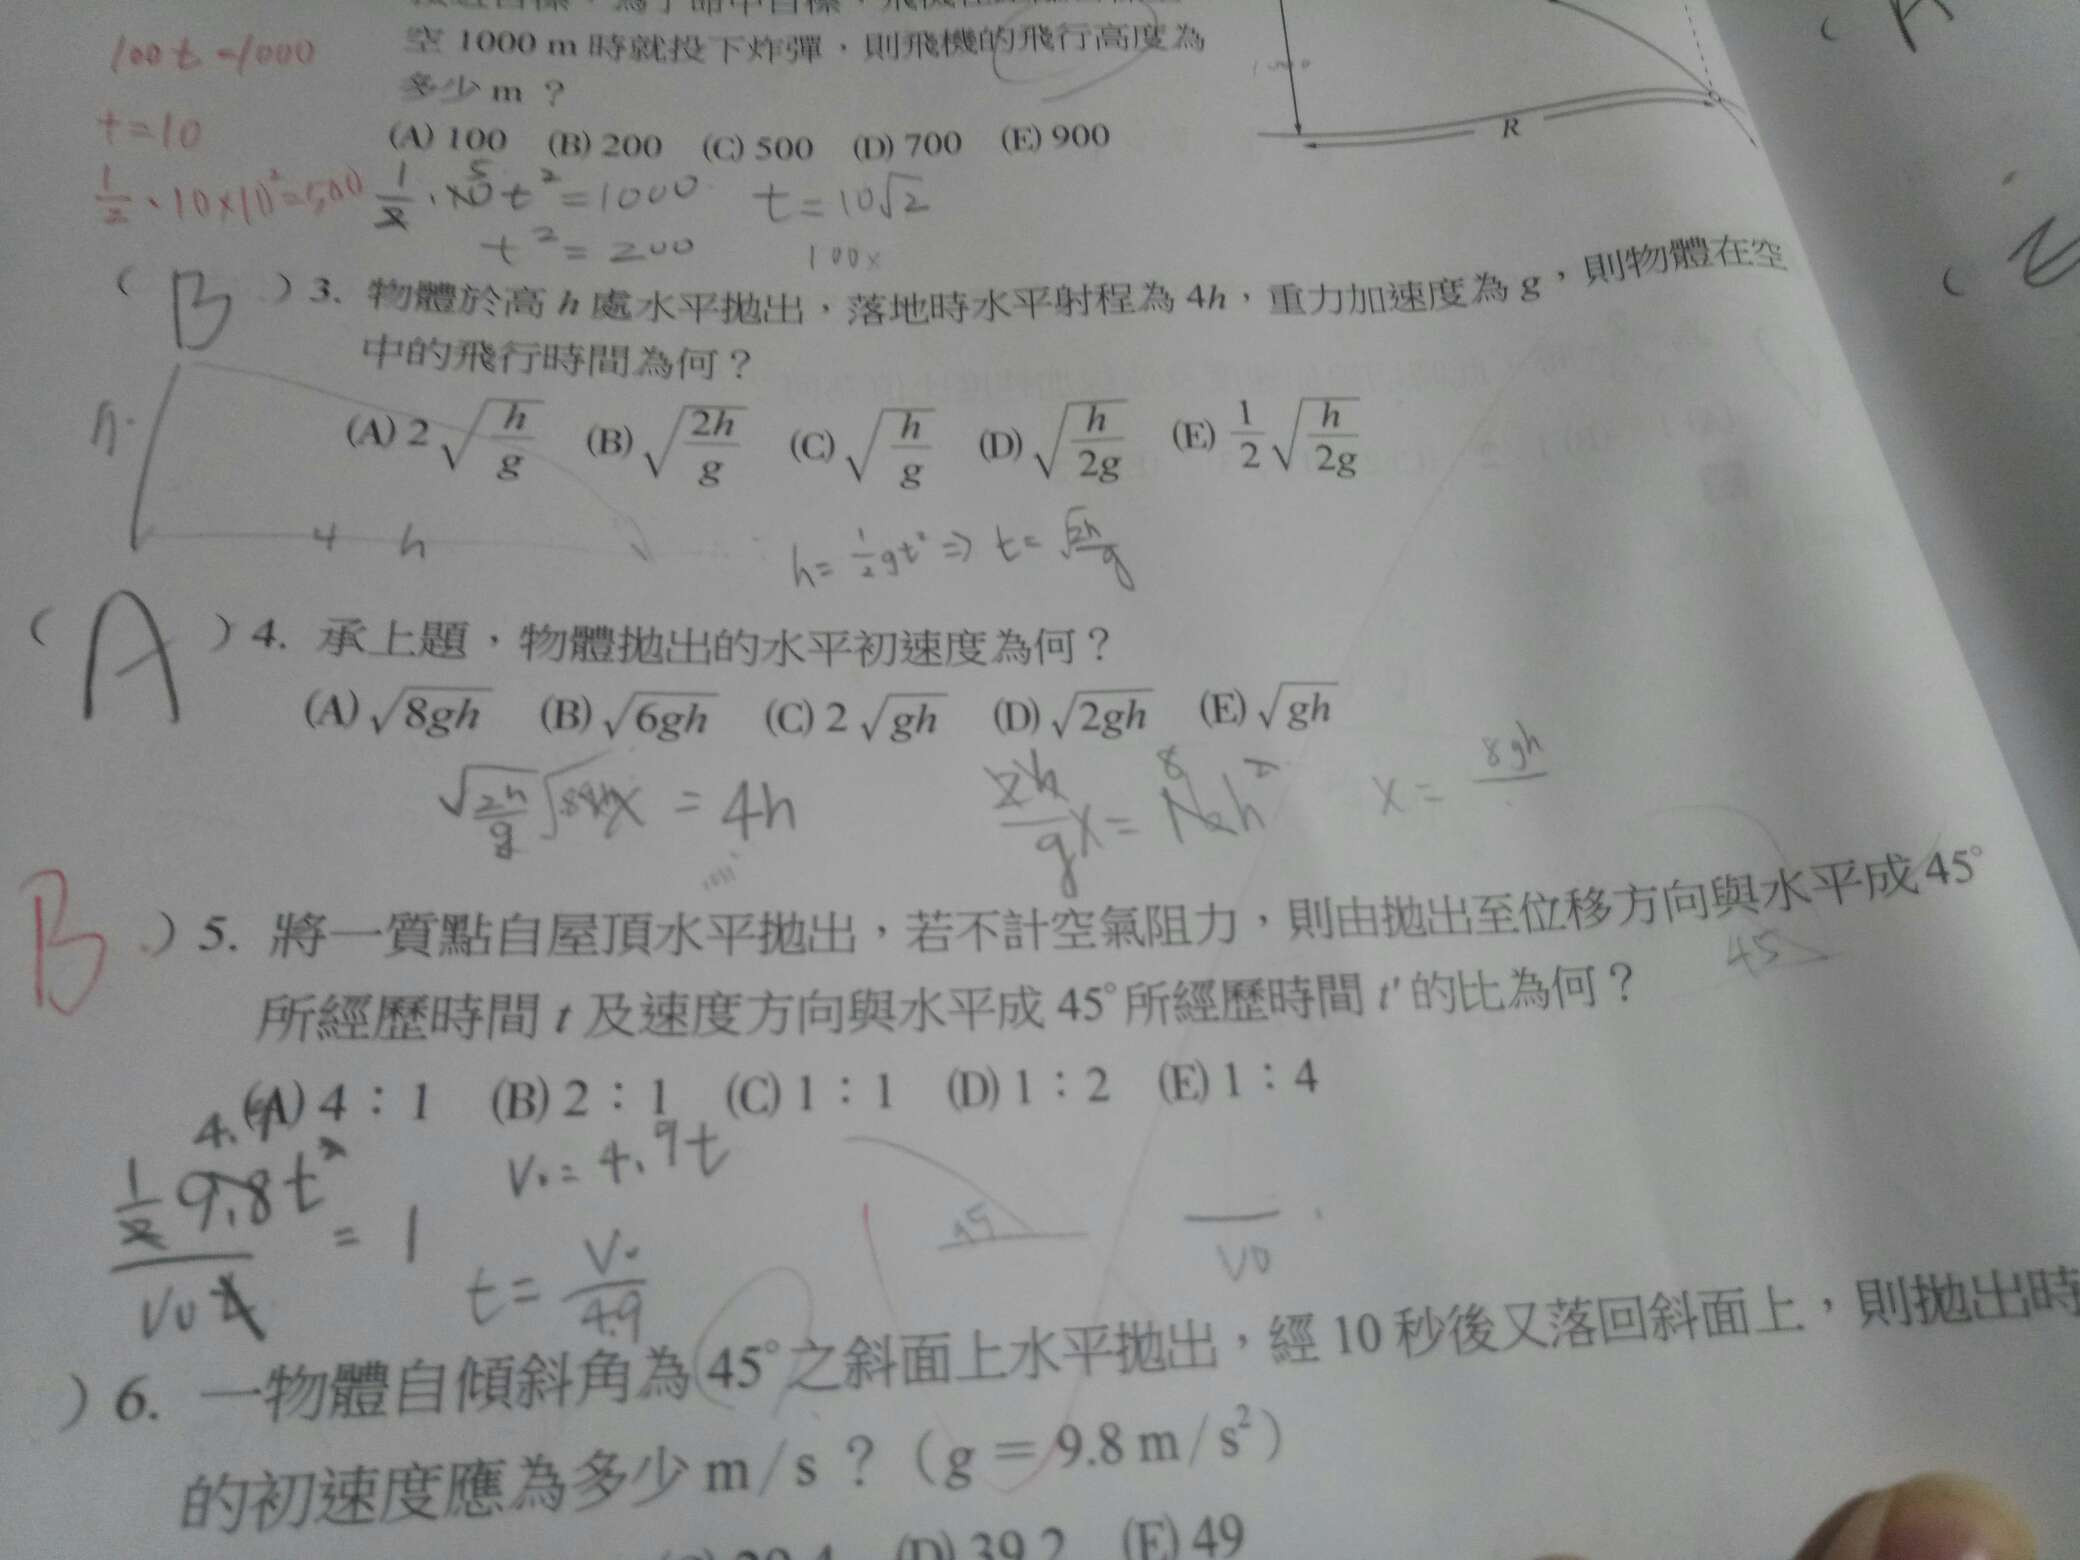 空 1000 m 時就投下炸彈，則飛機的飛行高度為
多少 m ？
(A) 100 (B) 200 (C) 500 (D) 700 (E) 900
100t=1000
t=10
1/2·10×10²=500
1/2·10t²=1000 t=10√2
t²=200
100x
R
( B ) 3. 物體於高 h 處水平拋出，落地時水平射程為 4h，重力加速度為 g，則物體在空
中的飛行時間為何？
(A) 2√(h/g) (B) √(2h/g) (C) √(h/g) (D) √(h/2g) (E) 1/2√(h/2g)
h
4h
h=1/2gt²⇒t=√(2h/g)
( A ) 4. 承上題，物體拋出的水平初速度為何？
(A) √8gh (B) √6gh (C) 2√gh (D) √2gh (E) √gh
√(2h/g) x = 4h
2h/g x = 16h² 8
x = 8gh
B ) 5. 將一質點自屋頂水平拋出，若不計空氣阻力，則由拋出至位移方向與水平成 45°
所經歷時間 t 及速度方向與水平成 45°所經歷時間 t' 的比為何？
45
(A) 4：1 (B) 2：1 (C) 1：1 (D) 1：2 (E) 1：4
4.9
1/2 9.8t² / V0t = 1
V0=4.9t
t=V0/4.9
45
V0
) 6. 一物體自傾斜角為 45°之斜面上水平拋出，經 10 秒後又落回斜面上，則拋出時
的初速度應為多少 m/s ？（g＝9.8 m/s²）
(D) 39.2 (E) 49